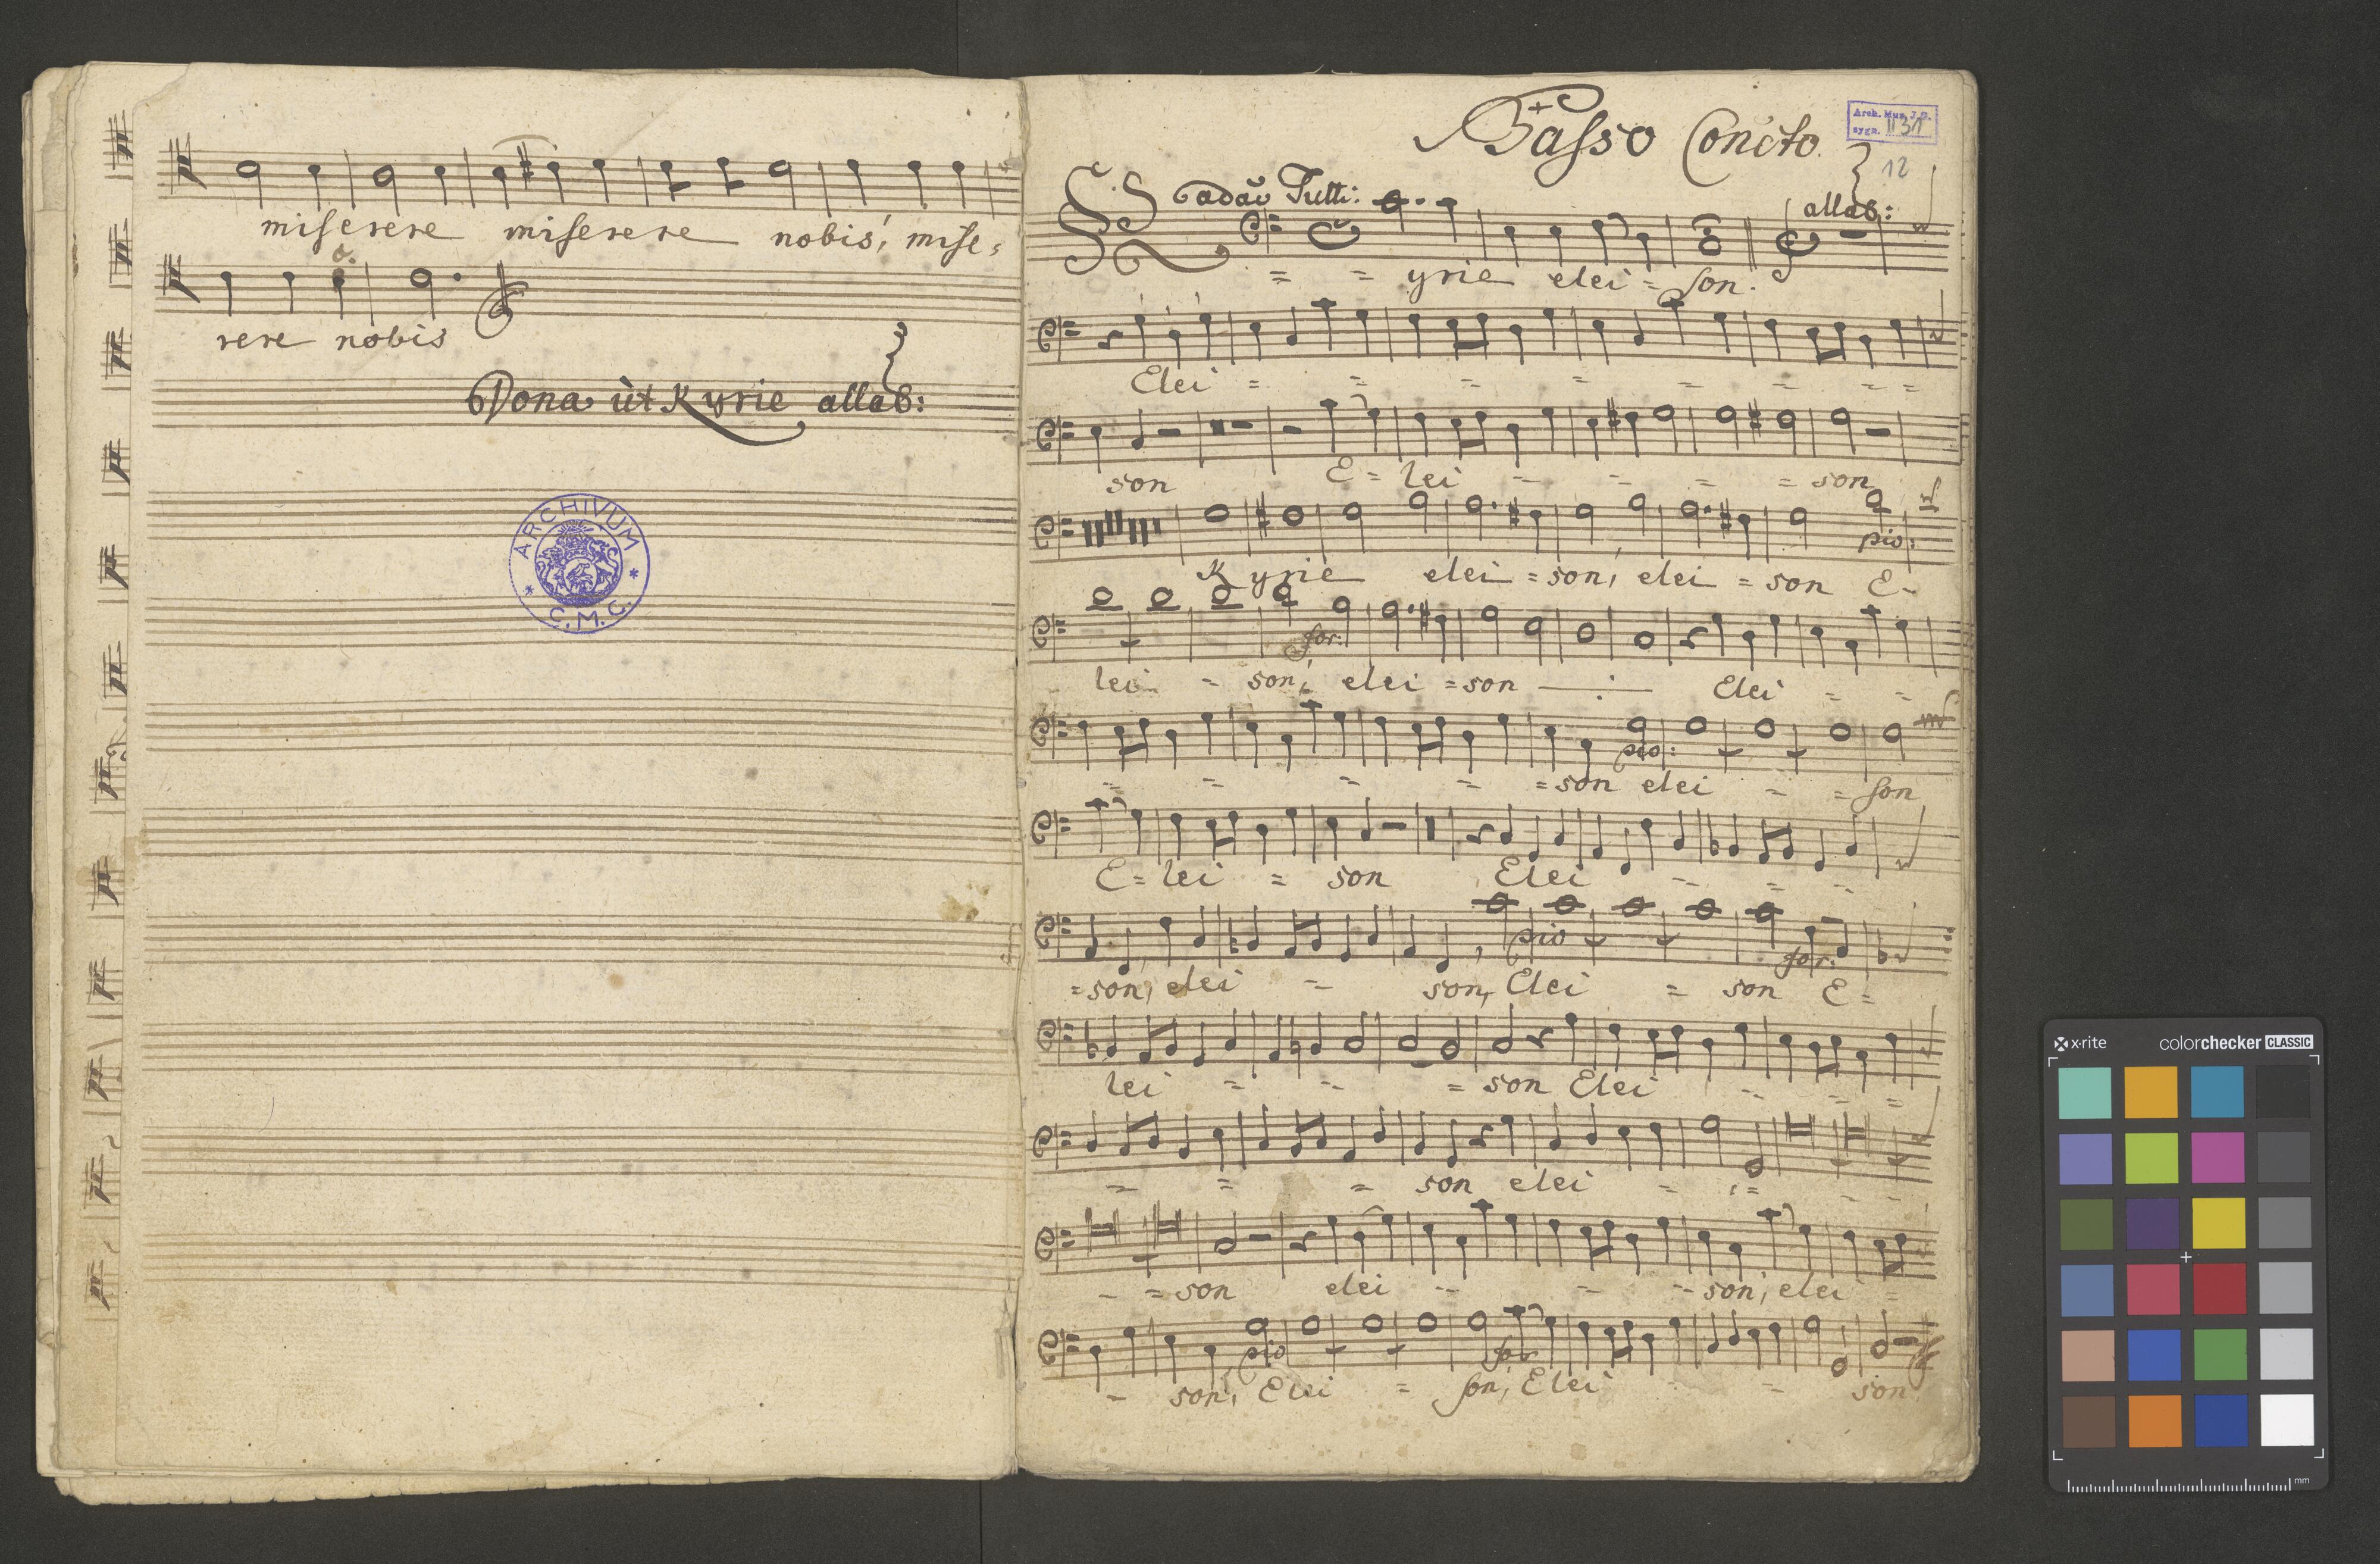 miserere miserere nobis, mise=
rere nobis
Dona ùt Kyrie allab:
ARCHIVUM
* C.M.C. *
Basso Concto
Arch. Mus. J.G.
sygn. II 31
12
Tutti: allab:
= = yrie elei = son.
Elei = = = = = = = =
son E = lei = = = = son
pio:
Kyrie elei = son, elei = son E-
for:
lei - = son, elei = son Elei = =
pio:
= = = = = son elei = = son
E = lei = son Elei = = =
pio for:
= son, elei = son, Elei = son E =
lei = = = son Elei = = =
= = = son elei = = = =
- = son elei = = = son, elei =
pio for
- son, Elei = son, Elei = = son
x-rite colorchecker CLASSIC
mm